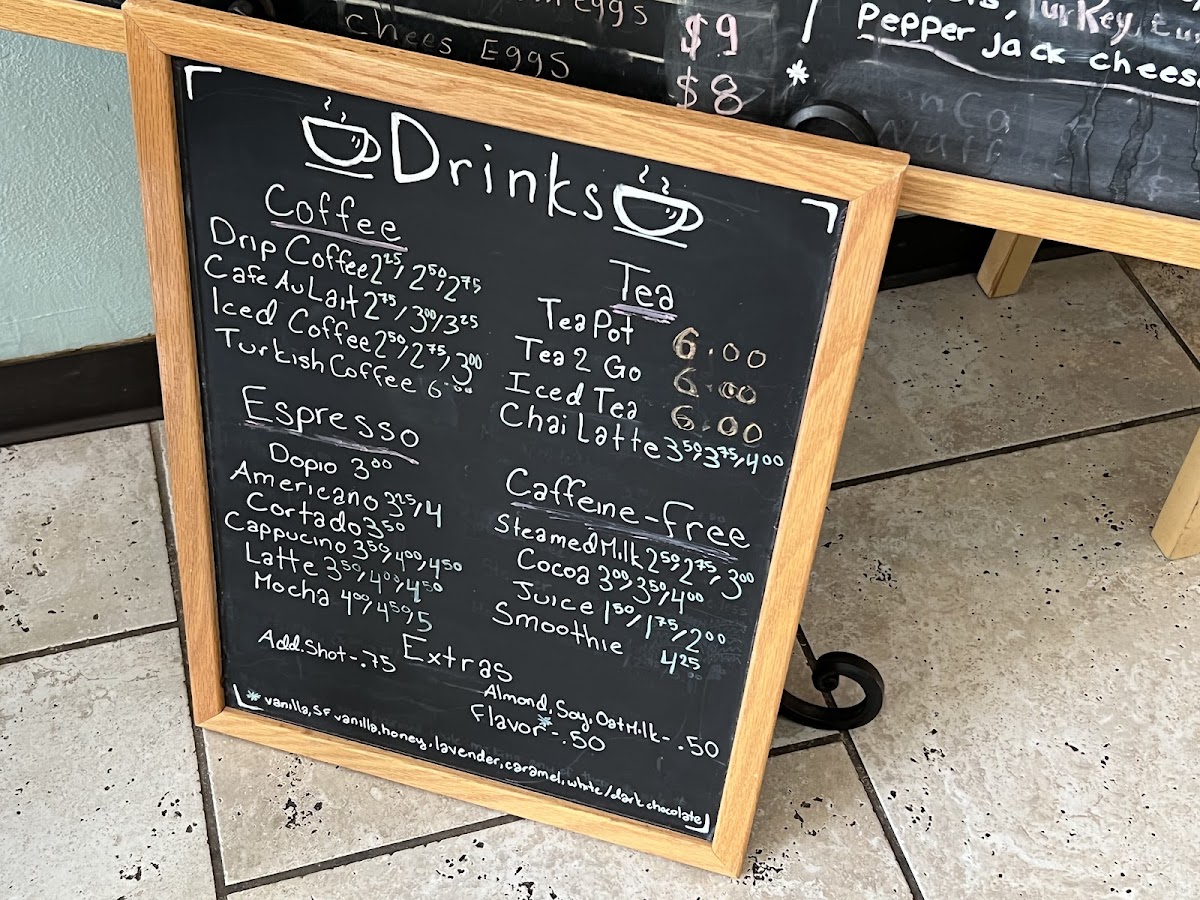 Eggs
Chees Eggs
$9
$8
Turkey,
Pepper Jack cheese
*
Drinks
Coffee
Drip Coffee 2²⁵, 2⁵⁰, 2⁷⁵
Cafe Au Lait 2⁷⁵/3⁰⁰/3²⁵
Iced Coffee 2⁵⁰, 2⁷⁵, 3⁰⁰
Turkish Coffee 6.⁰⁰
Espresso
Dopio 3⁰⁰
Americano 3²⁵/4
Cortado 3⁵⁰
Cappucino 3⁵⁰, 4⁰⁰, 4⁵⁰
Latte 3⁵⁰/4⁰⁰, 4⁵⁰
Mocha 4⁰⁰, 4⁵⁰, 5
Tea
Tea Pot 6.00
Tea 2 Go 6.00
Iced Tea 6.00
Chai Latte 3⁵⁰, 3⁷⁵, 4⁰⁰
Caffeine-Free
Steamed Milk 2⁵⁰, 2⁷⁵, 3⁰⁰
Cocoa 3⁰⁰, 3⁵⁰, 4⁰⁰
Juice 1⁵⁰/1⁷⁵/2⁰⁰
Smoothie 4²⁵
Extras
Add.Shot-.75
Almond, Soy, Oat Milk-.50
Flavor*-.50
*vanilla, SF vanilla, honey, lavender, caramel, white/dark chocolate